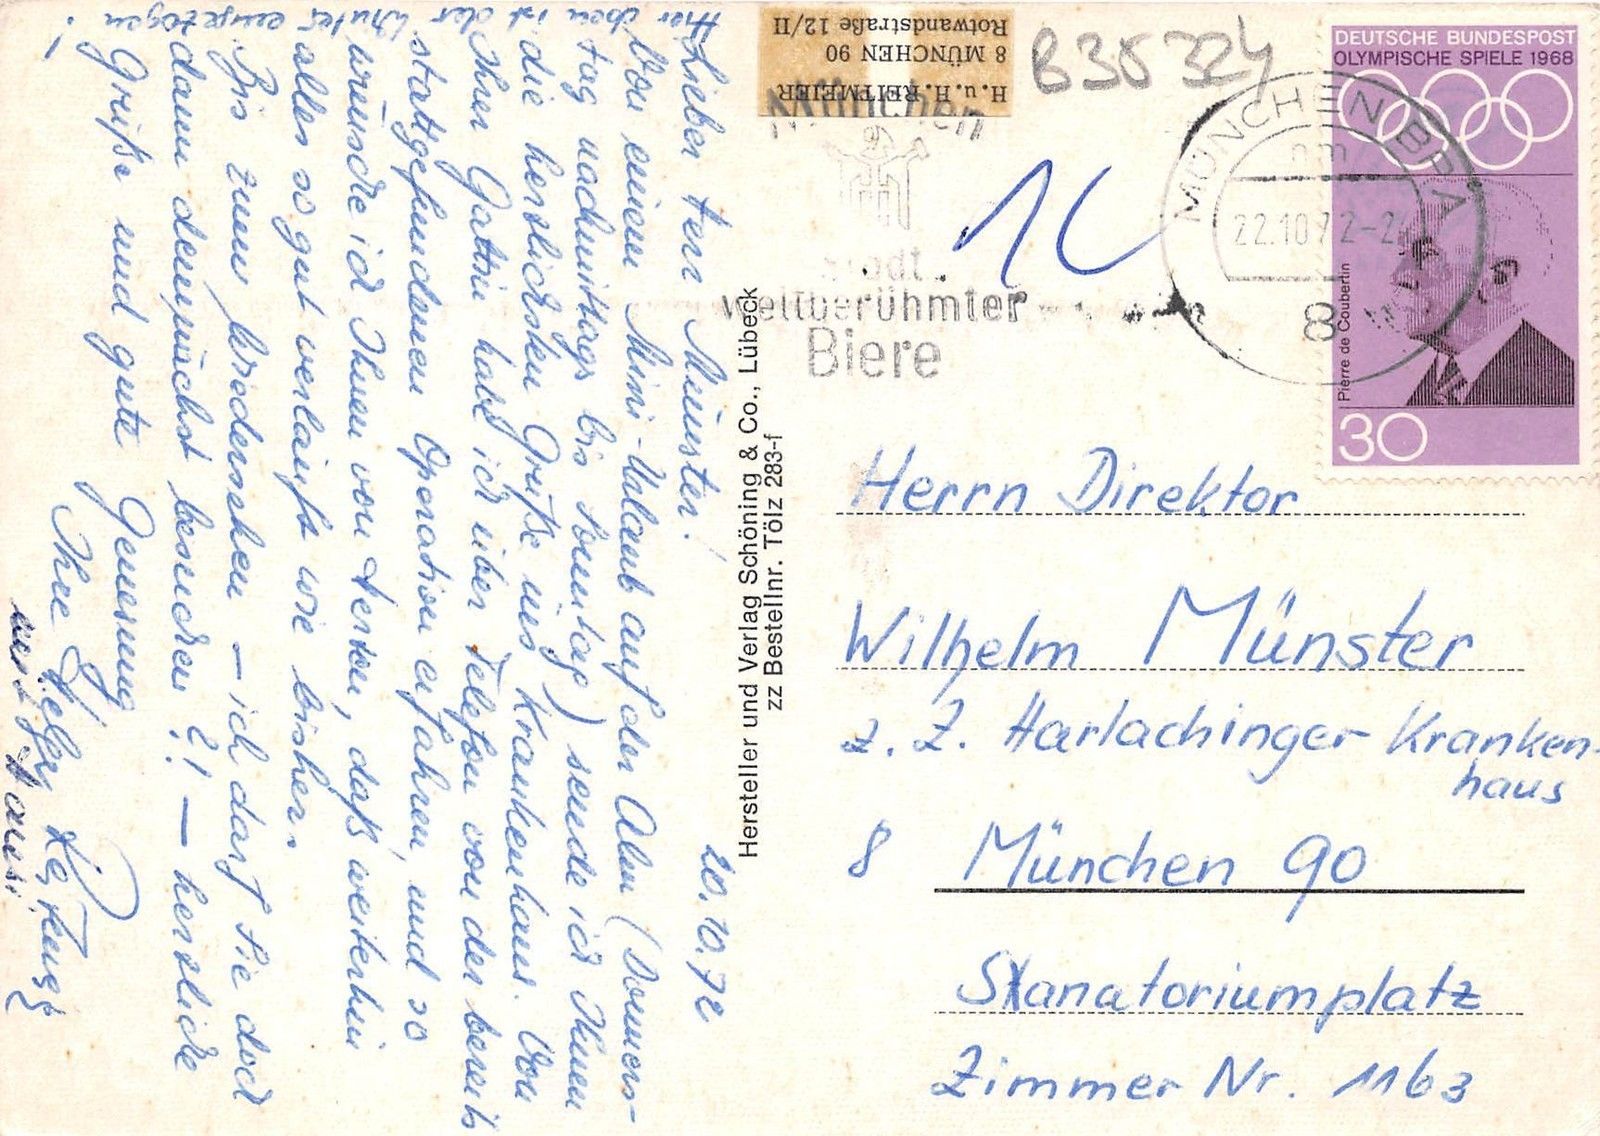 Hier oben ist der Winter eingezogen!
20.10.72
Lieber Herr Münster!
Von einem Mini-Urlaub auf der Alm (Donners-
tag nachmittags bis Sonntag) sende ich Ihnen
die herzlichsten Grüße ins Krankenhaus. Von
Ihrer Gattin habe ich über Telefon von der bereits
stattgefundenen Operation erfahren, und so
wünsche ich Ihnen von Herzen, daß weiterhin
alles so gut verläuft wie bisher.
Bis zum Wiedersehen – ich darf Sie doch
dann demnächst besuchen?! – herzliche
Grüße und gute Genesung
Ihre
und Hansi
Hersteller und Verlag Schöning & Co., Lübeck
zz Bestellnr. Tölz 283-f
H. u. H. REITMEIER
8 MÜNCHEN 90
Rotwandstraße 12/II
B 36 324
München
Stadt
weltberühmter
Biere
MÜNCHEN BPA
22.10.72-2
8
DEUTSCHE BUNDESPOST
OLYMPISCHE SPIELE 1968
Pierre de Coubertin
30
Herrn Direktor
Wilhelm Münster
z. Z. Harlachinger Kranken-
haus
8 München 90
Sanatoriumplatz
Zimmer Nr. 1163